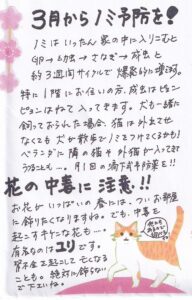 3月からノミ予防を!
ノミはいったん家の中に入りこむと
卵→幼虫→さなぎ→成虫と
約3週間サイクルで爆発的に増えます。
特に1階にお住いの方、成虫はピョン
ピョンはねて入ってきます。犬も一緒に
飼っておられた場合、猫は外出させ
なくても犬が散歩でノミをつけてくるかも!
ベランダに隣の猫や外猫が入ってきて
うつることも…。月1回の滴下式予防薬を!!
花の中毒に注意!!
お花がいっぱいの春には、ついお部屋
に飾りたくなりますね。でも、中毒を
起こすキケンな花も…。
有名なのはユリです。
腎不全を起こして亡くなる
ことも。絶対に飾らない
で下さいね。